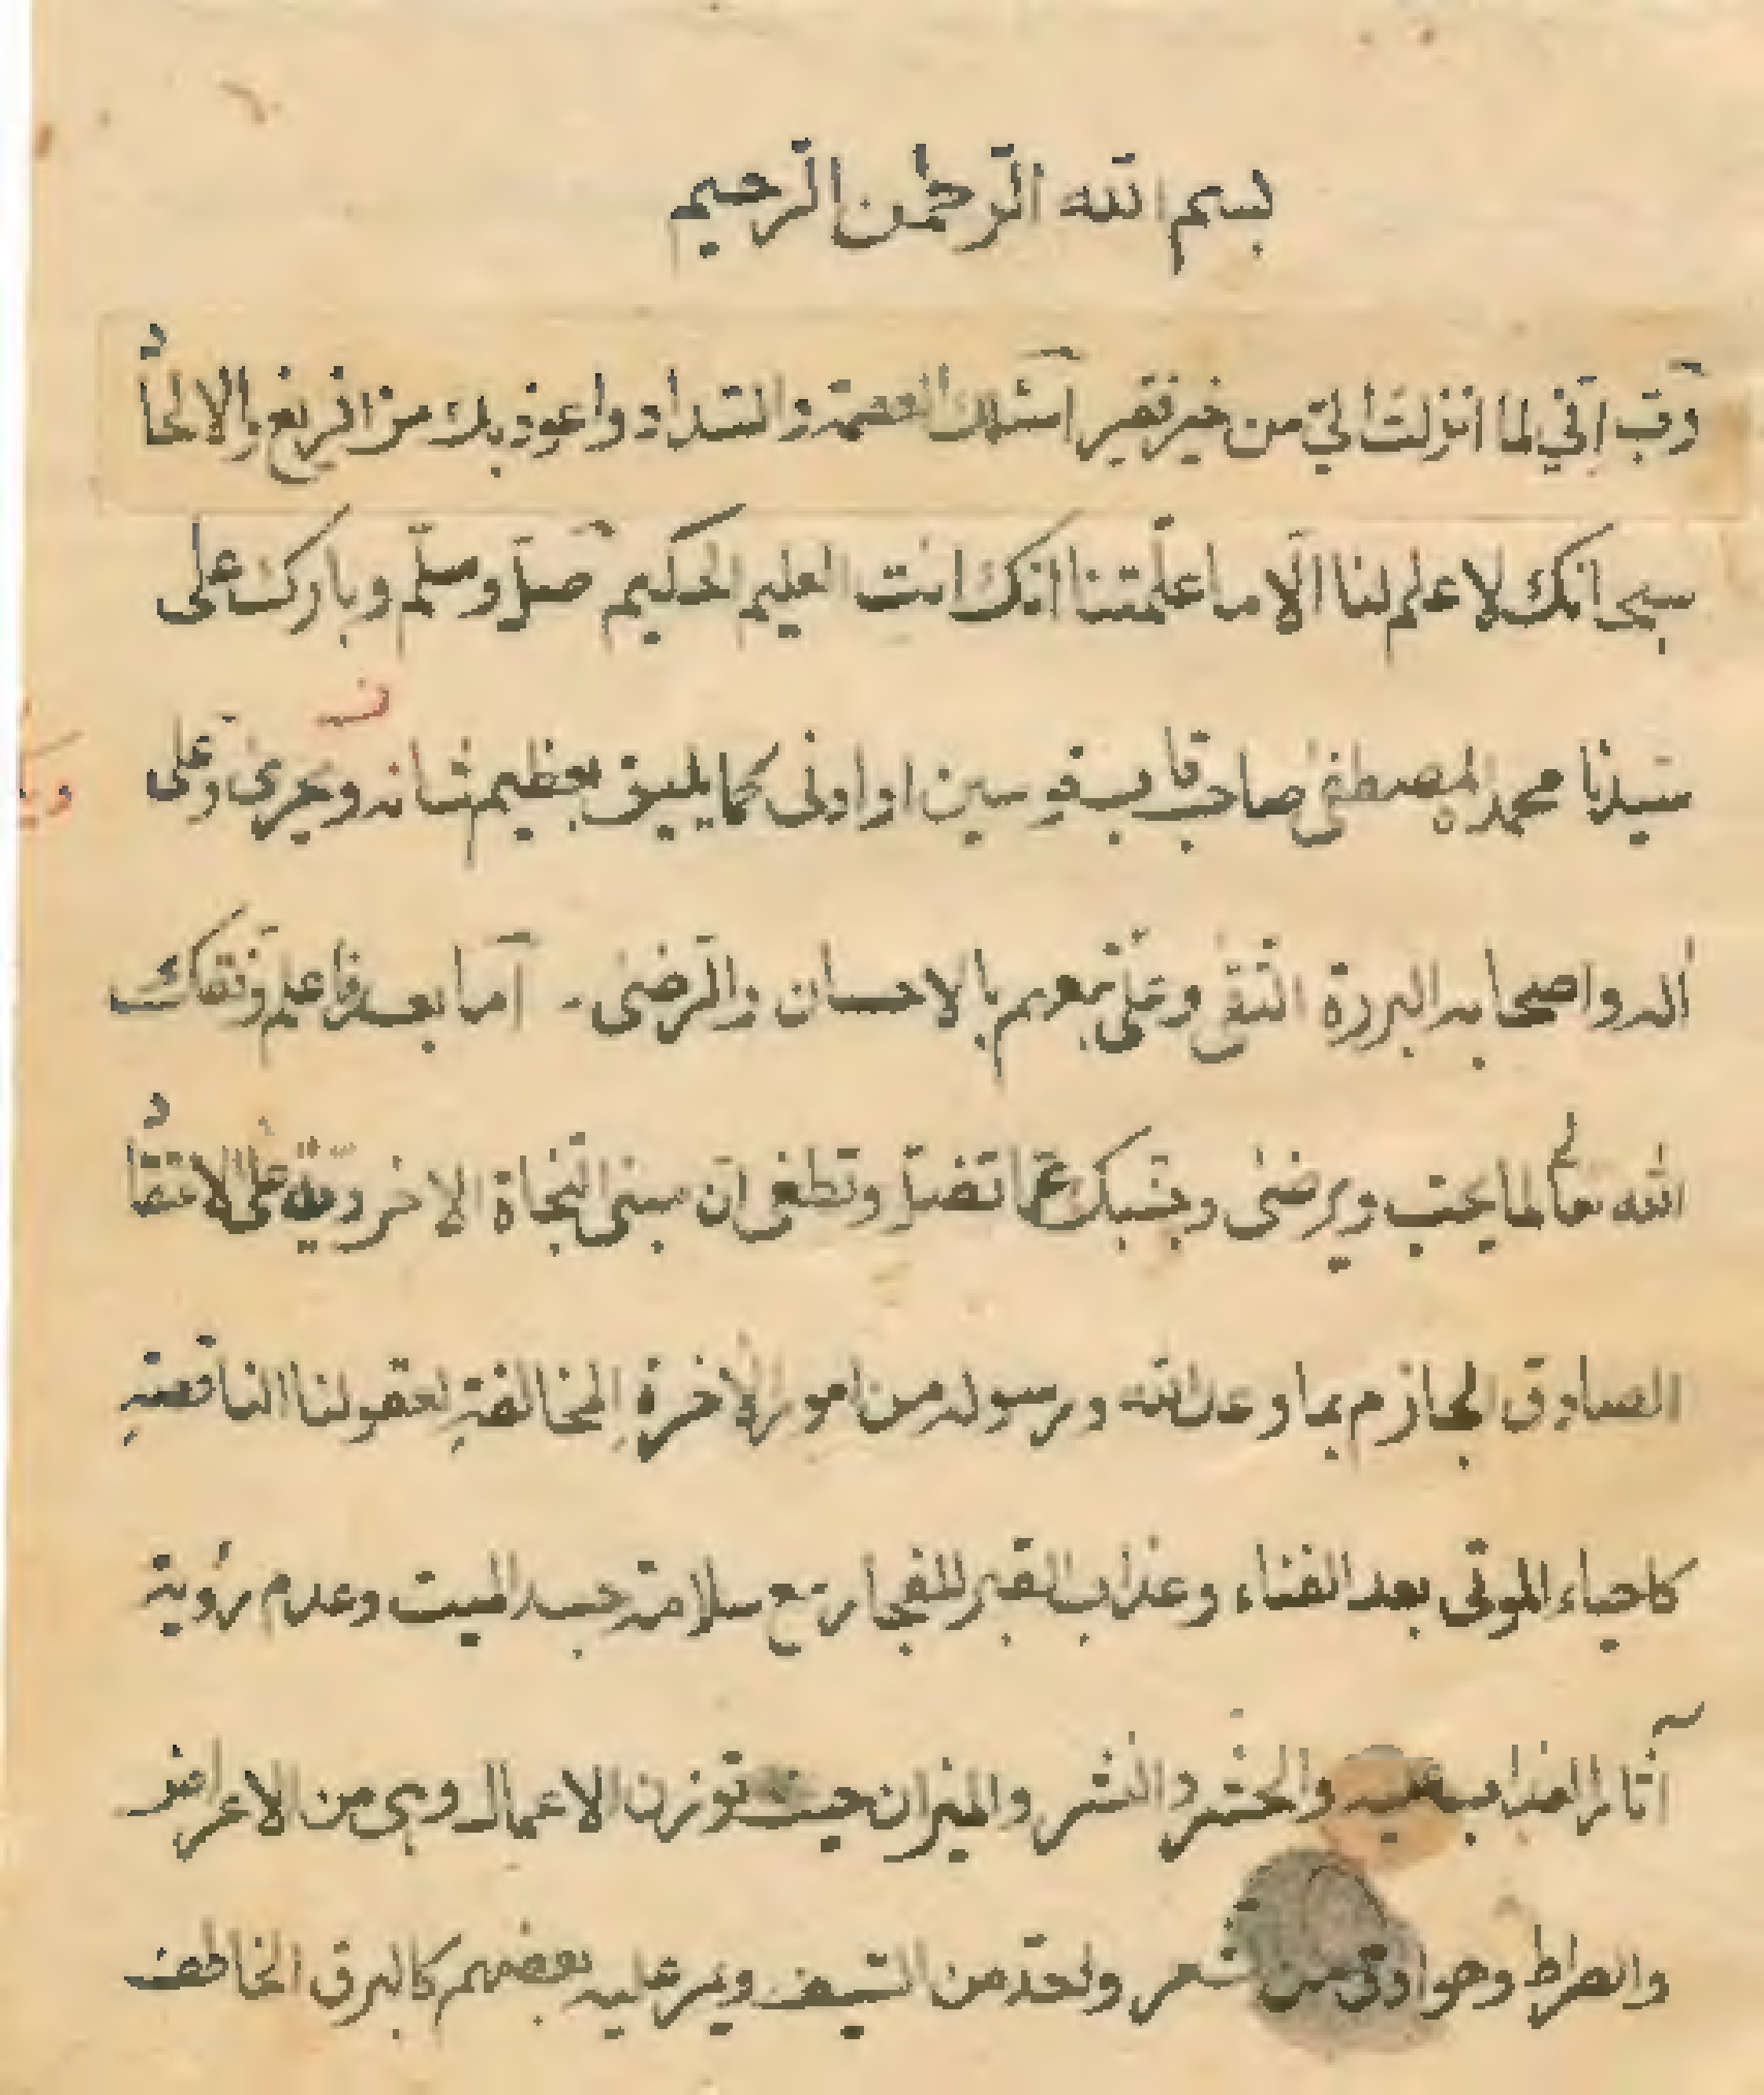 بسم الله الرحمن الرحيم
رب إنّي لما انزلت اليّ من خير فقير اسئلك العصمة والسّداد واعوذ بك من الزيغ والالحاد
سبحانك لا علم لنا الّا ما علّمتنا انك انت العليم الحكيم صلّ وسلّم وبارك على
سيّدنا محمد المصطفى صاحب قاب قوسين او ادنى كما يليق بعظيم شانه ويحرى وعلى
آله واصحابه البررة التقى وعلى تبعهم بالاحسان والرّضى ـ امّا بعد فاعلم وفّقك
الله تعالى لما يحبّ ويرضى ويجنّبك عمّا تضلّ وتطغى انّ مبنى النّجاة الاخرويّة على الاعتقاد
الصادق الجازم بما وعد الله ورسوله من امور الآخرة المخالفةِ لعقولنا الناقصةِ
كاحياء الموتى بعد الفناء وعذاب القبر للفجار مع سلامة جسد الميت وعدم رؤية
آثار العذاب عليه والحشر والنشر والميزان حيث توزن الاعمال وهى من الاعراض
والصراط وهو ادقّ من الشعر واحدّ من السّيف ويمر عليه بعضهم كالبرق الخاطف